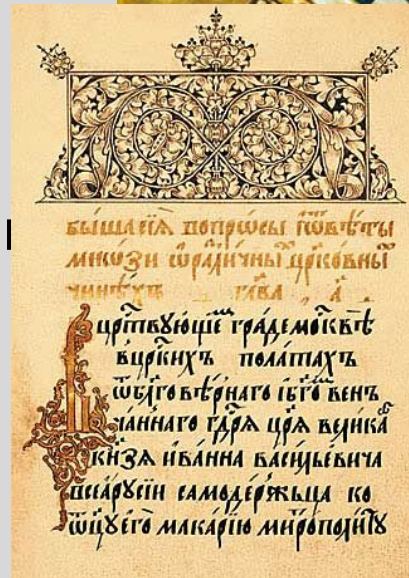 бы́ша сїѧ̀ вопро́сы і҆ѿвѣ́ты
мно́зи ѡ҆ разли́чныⷯ цр҃ко́вныⷯ
чинѣ́хъ гла́ва а҃
Въ црⷭ҇твꙋющеⷨ гра́де москвѣ̀
вцрⷭ҇кихъ пола́тахъ
ѿбл҃говѣ́рнаго і҆бг҃оⷨ вень
ча́ннаго гдⷭ҇рѧ цр҃ѧ вели́каⷢ҇
кн҃зѧ и҆ва́нна васи́льевича
всеа̀рꙋсі́и самоде́ржьца ко
ѿцꙋ̀ є҆гѡ̀ мака́рїю митрополи́тꙋ